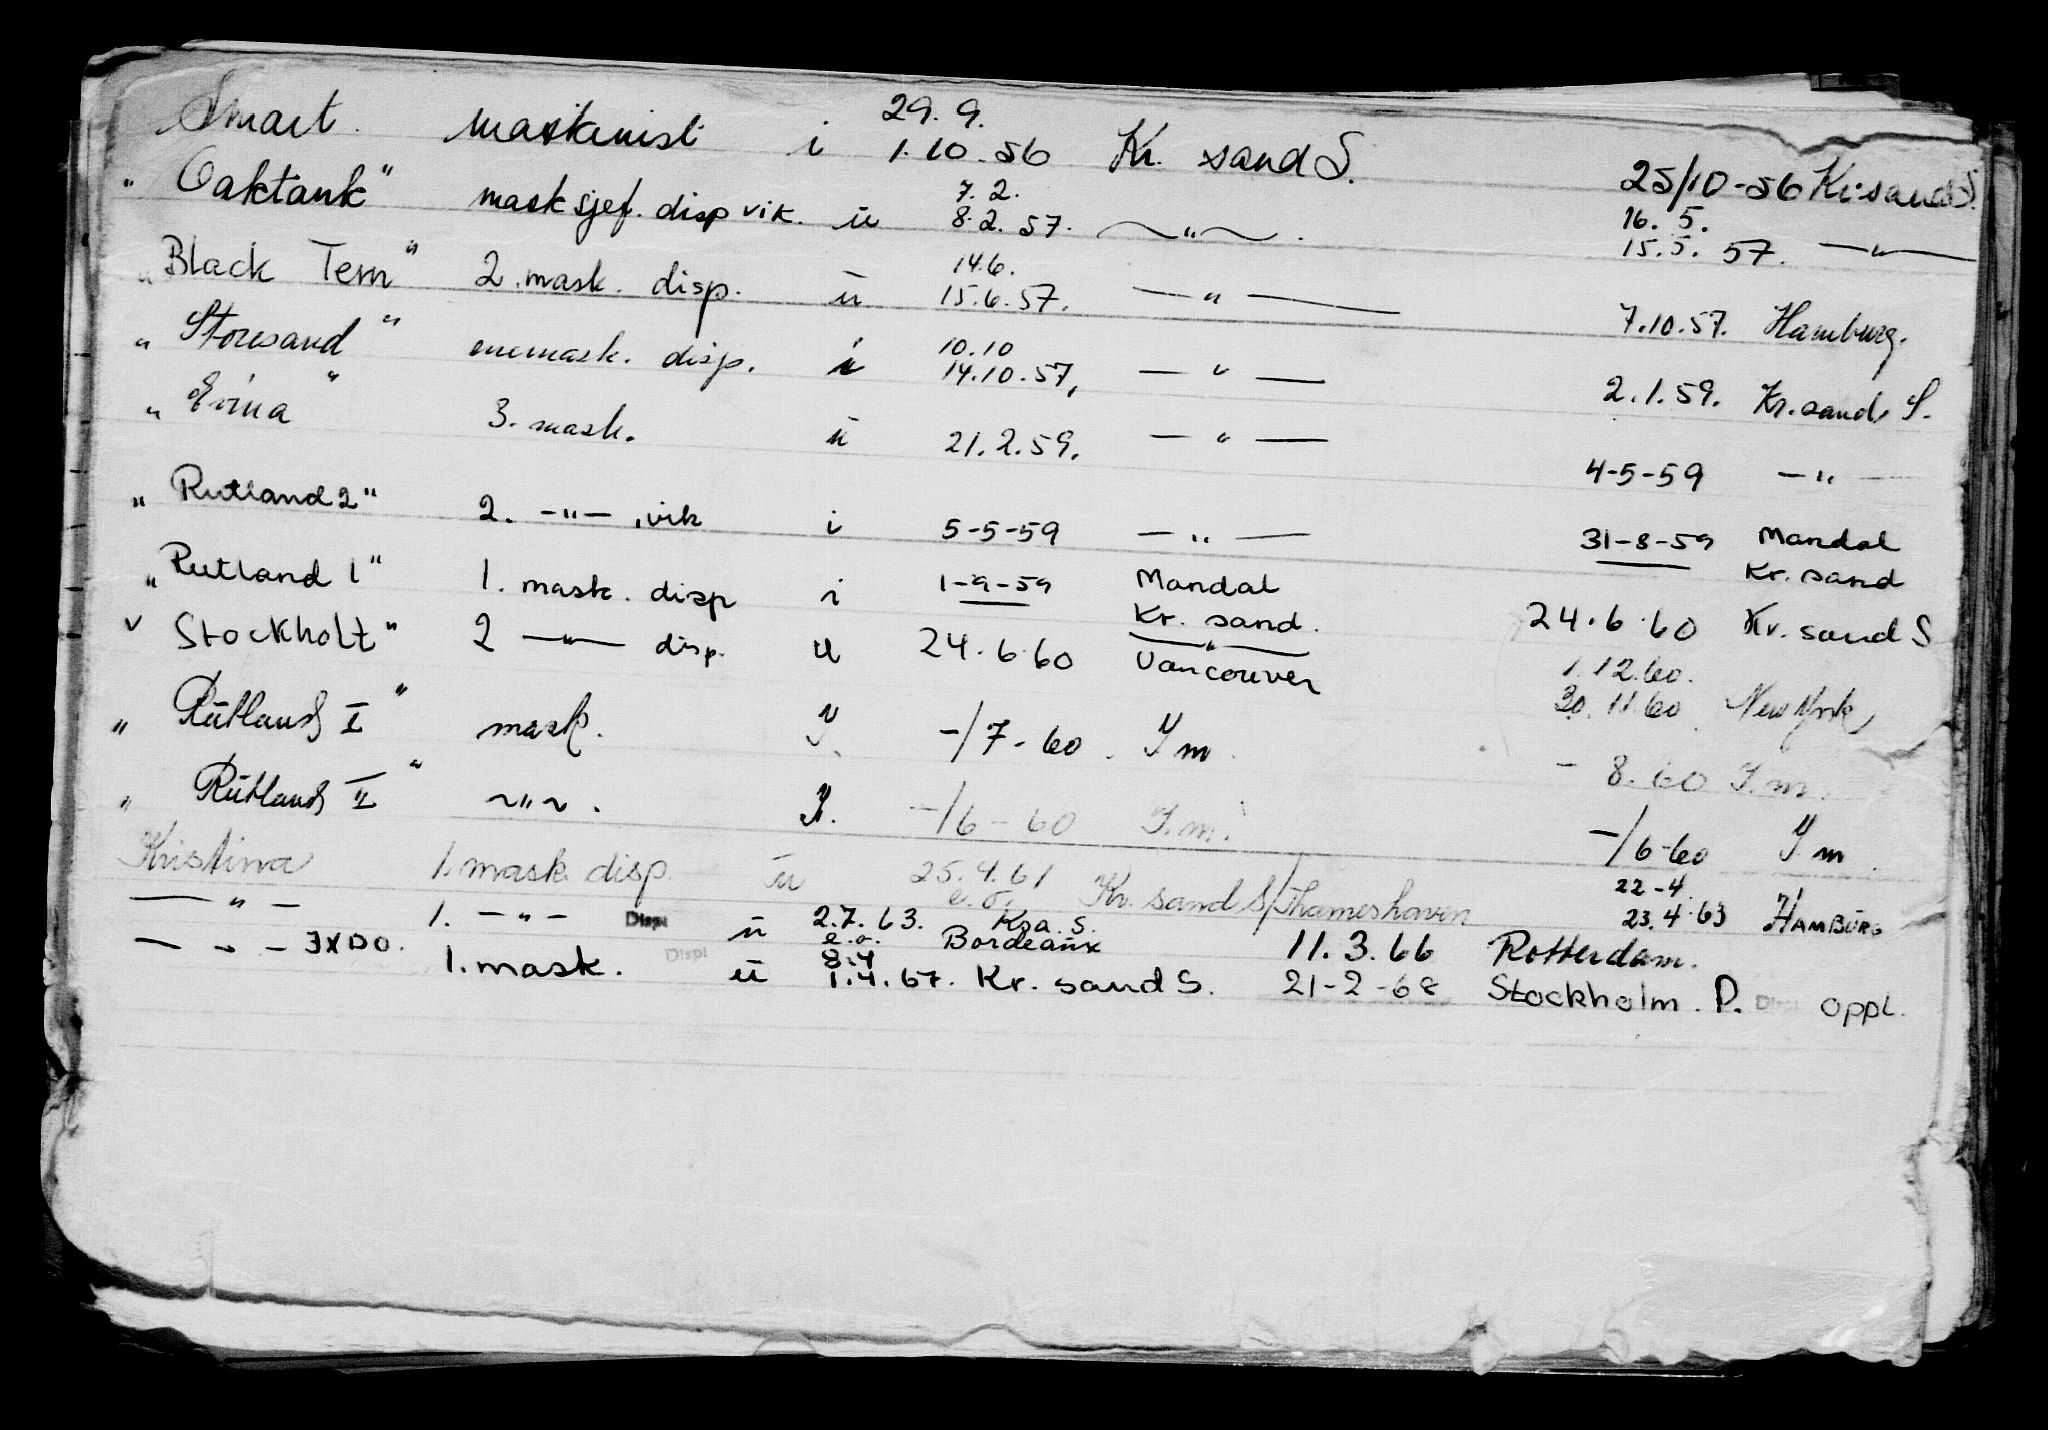 29. 9.
Smart maskinist i 1.10-56 Kr. sand S. 25/10-56 Kr.sand S.
7. 2. 16. 5.
" Oaktank" masksjef. disp vik. u 8.2.57. —"— . 15.5.57. —"—
14.6.
" Black Tern" 2. mask. disp. u 15.6.57. —"— 7.10.57. Hamburg.
10.10
" Storesand" enemask. disp. i 14.10.57, —"— 2.1.59. Kr.sand. S.
" Erina" 3. mask. u 21.2.59. —"— 4-5-59 —"—
" Rutland 2" 2. —"— , vik i 5-5-59 —"— 31-8-59 Mandal
" Rutland 1" 1. mask. disp i 1-9-59 Mandal Kr. sand
Kr. sand. 24.6.60 Kr. sand S
" Stockholt" 2 —"— disp. u 24.6.60 —"— Vancouver 1.12.60.
30.11.60 New York
" Rütland I" mask. I. -/7-60. I m. - 8.60 I.m.
" Rütland II" ~"~. I. -/6-60 I.m. -/6-60 I m
Kristina 1. mask. disp. u 25.4.61 e.o. Kr. sand S/Thameshaven 22-4 23.4.63 HAMBURG
—"— 1. —"— Displ u 2.7.63. e.o. Kra. S. Bordeaux 11.3.66 Rotterdam.
8.4
—"— JXDO. 1. mask. Displ u 1.4.67. Kr. sand S. 21-2-68 Stockholm. D. Displ oppl.